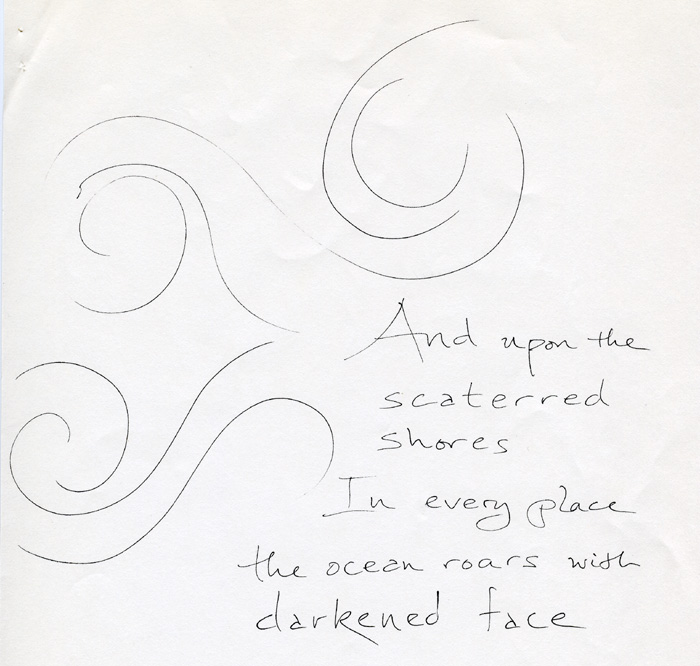 And upon the
scaterred
shores
In every place
the ocean roars with
darkened face